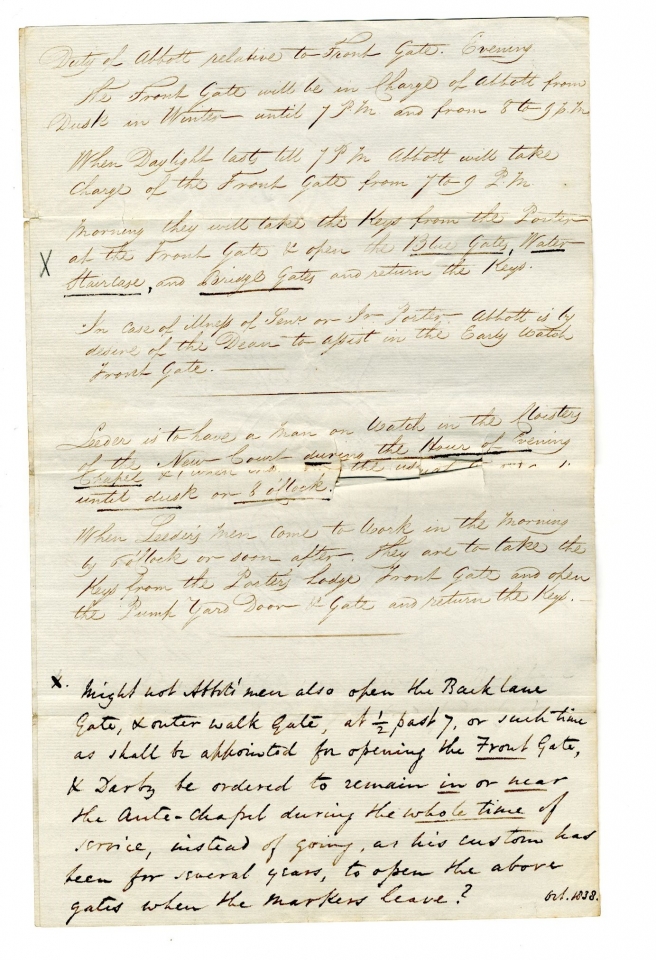 Duty of Abbott relative to Front Gate. Evening
The Front Gate will be in Charge of Abbott from
Dusk in Winter until 7 P.M and from 8 to 9 p.m
When Daylight lasts till 7 P M Abbott will take
Charge of the Front Gate from 7 to 9 P.M
Morning they will take the Keys from the Porter
at the Front Gate & open the Blue Gate, Water
X Staircase, and Bridge Gates and return the Keys.
In case of illness of Senr or Jr Porter Abbott is by
desire of the Dean to assist in the Early Watch
Front Gate.
Leeder is to have a Man on Watch in the Cloisters
of the New Court during the Hour of Evening
Chapel & the usual
until dusk or 8 o'Clock.
When Leeder's Men come to Work in the Morning
by 6 o'Clock or soon after. They are to take the
Keys from the Porter's Lodge Front Gate and open
the Pump Yard Door & Gate and return the Keys.
X. Might not Abbts' men also open the Back lane
Gate, & outer walk Gate, at ½ past 7, or such time
as shall be appointed for opening the Front Gate,
& Darby be ordered to remain in or near
the Ante-chapel during the whole time of
service, instead of going, as his custom has
been for several years, to open the above
gates when the markers leave? Oct. 1838.